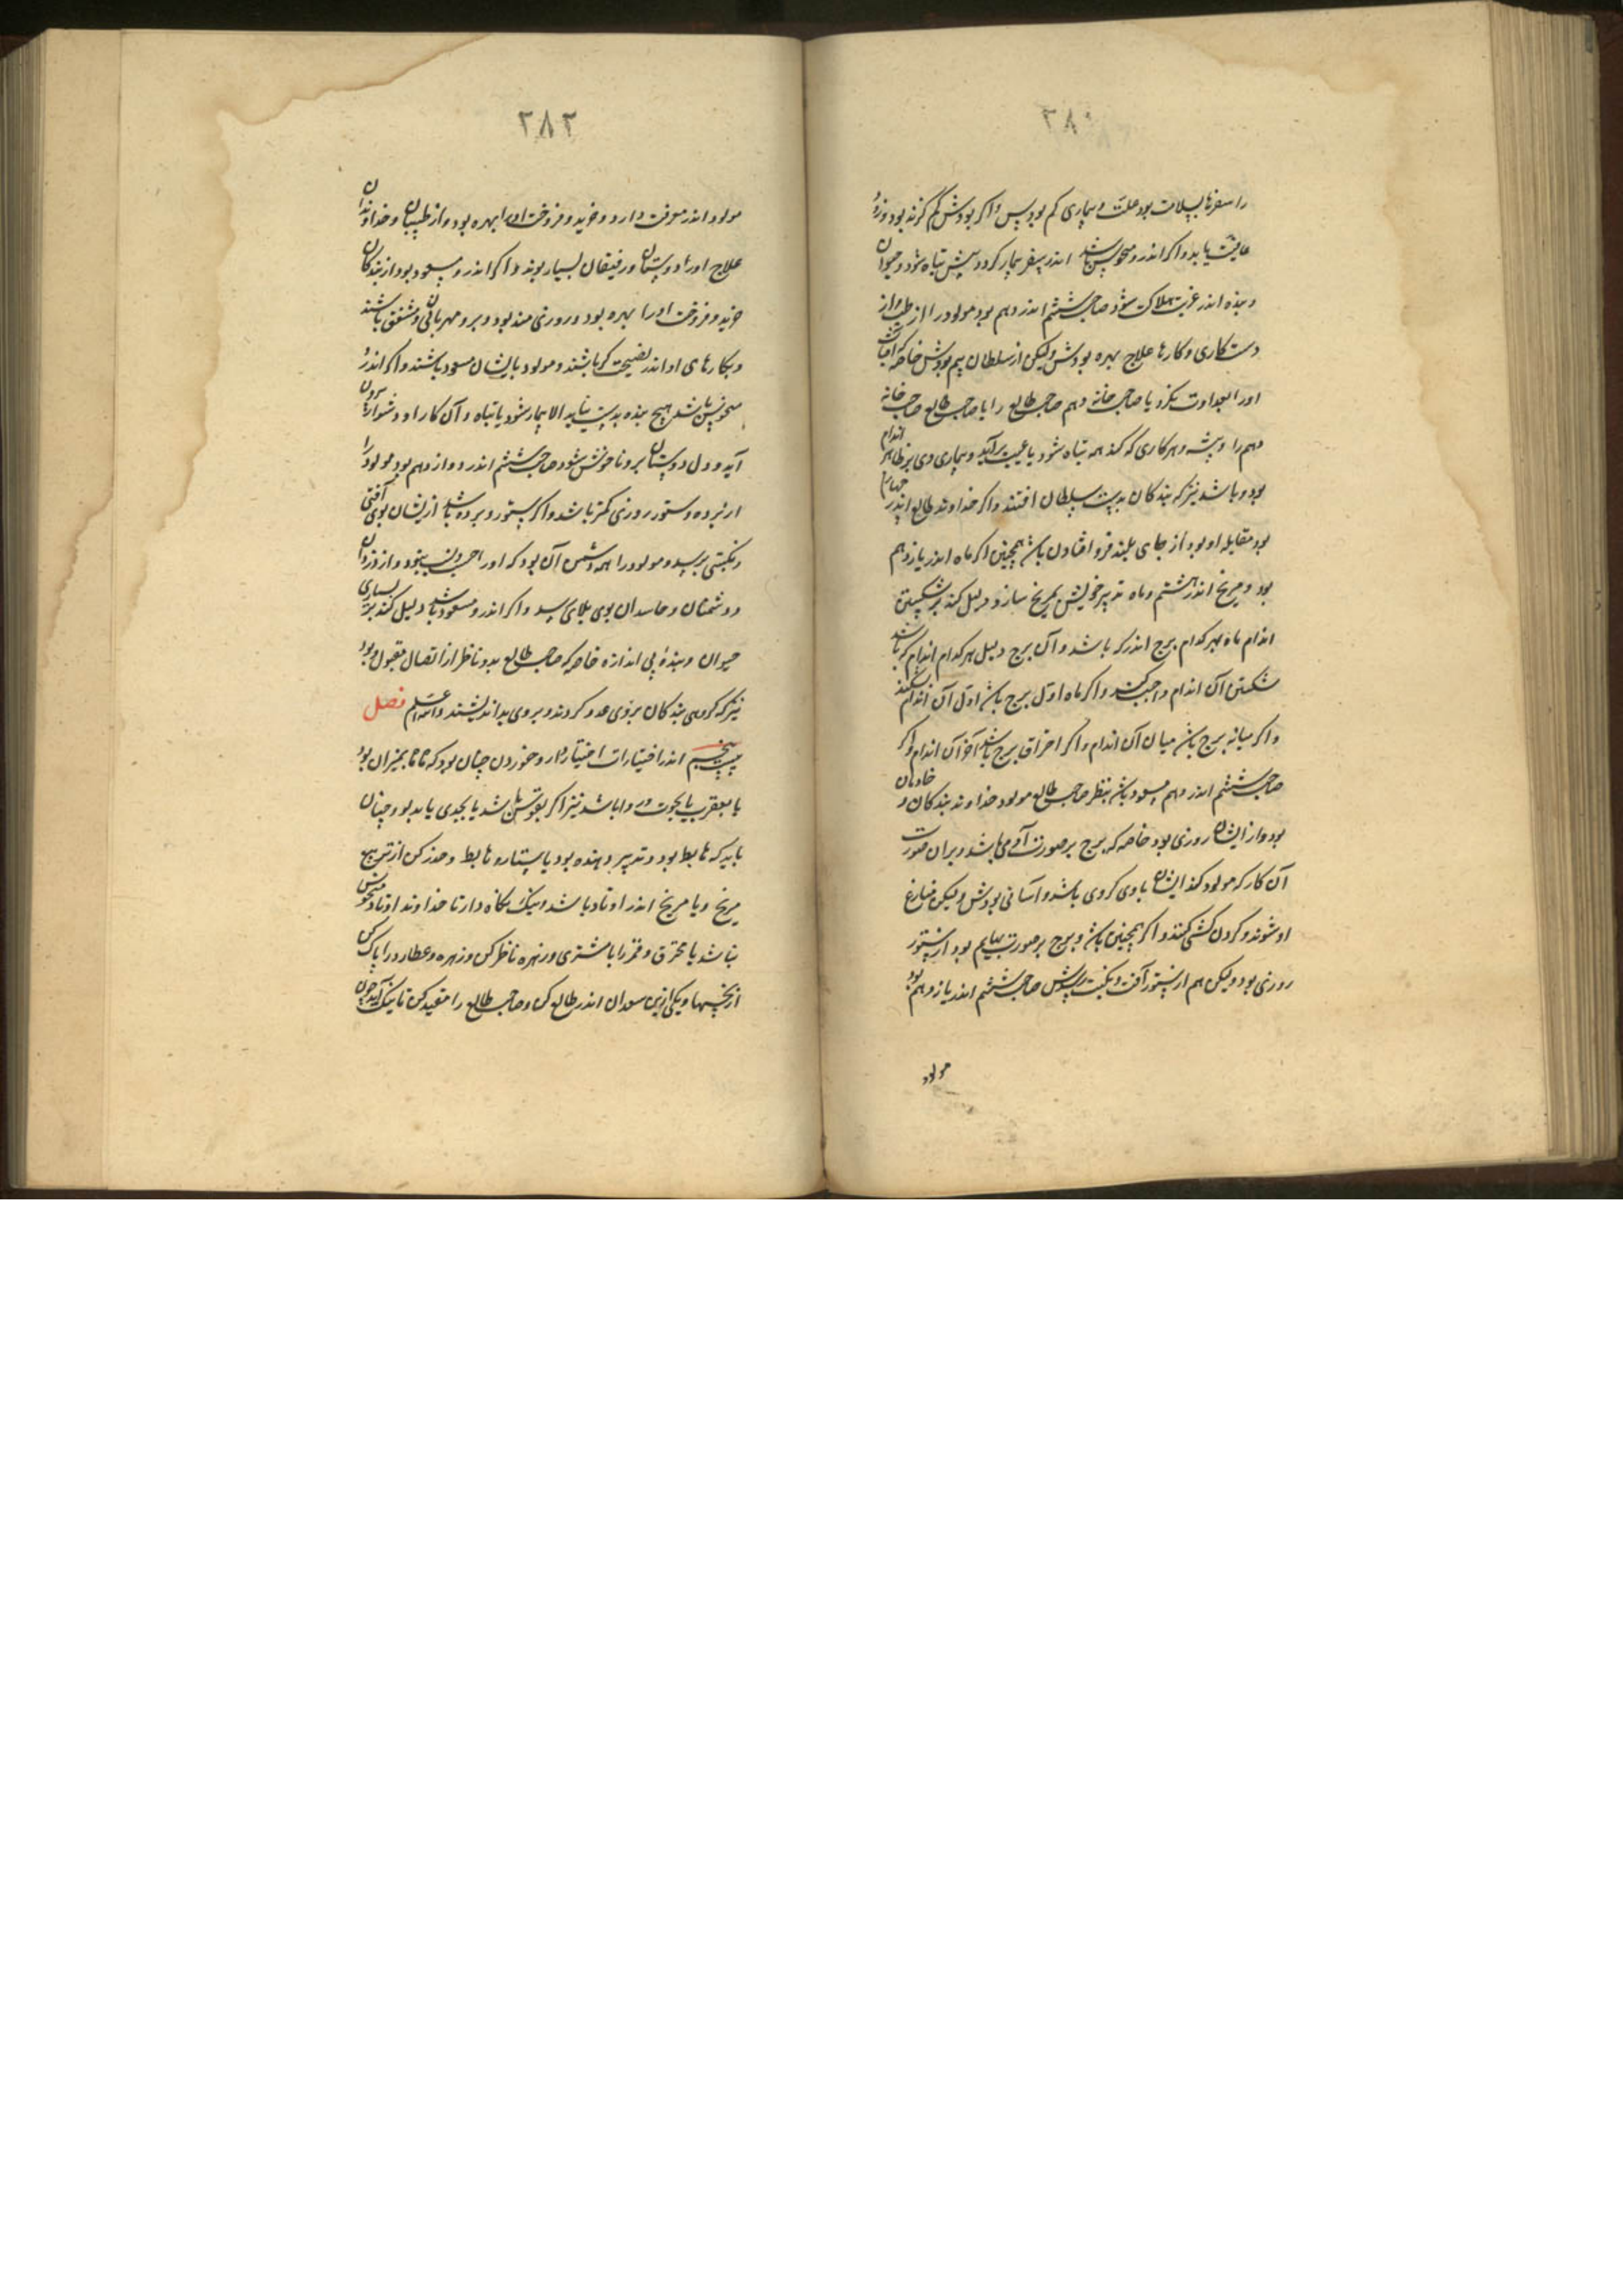 ۲۸۰
را سفرها بسلامت بود علت و بیماری کم بود پس و اگر بودش کم گزند بود و زود
عافیت یابد و اگر اندرو منحوس باشد اندر سفر بیمار گردد سپس تباه شود و حیوان
و بنده اندر غربت هلاک شود صاحب ششم اندر دهم بود مولود را از طب و از
دست کاری و کارها علاج بهره بودش ولیکن از سلطان بیم بودش خاصه که آفتاب
او را بعداوت نگرد یا صاحب خانه دهم صاحب طالع را یا صاحب طالع صاحب خانه
دهم را و پیشه و هر کاری که کند همه تباه شود یا عیب برآید و بیماری وی بر ظاهر اندام
بود و باشد نیز که بندگان بدست سلطان افتند و اگر خداوند طالع اندر چهارم
بود مقابله او بود از جای بلند فرو افتادن باشد همچنین اگر ماه اندر یازدهم
بود و مریخ اندر هشتم و ماه تدبیر خویش بمریخ سازد دلیل کند بر شکستن
اندام ماه بهر کدام برج اندر که باشد و آن برج دلیل بهر کدام اندام که باشد
شکستن آن اندام واجب کند و اگر ماه اول برج باشد اول آن اندام شکند
و اگر میانه برج باشد میان آن اندام و اگر احراق برج باشد آخر آن اندام و اگر
صاحب ششم اندر دهم مسعود باشد بنظر صاحب طالع مولود خداوند بندگان و خادمان
بود و از ایشان روزی بود خاصه که برج بر صورت آدمی باشد و بر آن صورت
آن کار که مولود کند ایشان با وی کروی باشد و آسانی بودش ولیکن منازع
او شوند و گردن کشی کنند و اگر همچنین باشد و برج بر صورت بهایم بود از ستور
روزی بود ولیکن هم از ستور آفت و نکبت رسدش صاحب ششم اندر یازدهم بود
مولود
۲۸۲
مولود اندر معرفت دارو و خرید و فروخت او را بهره بود و از طبیبان و خداوندان
علاج او را دوستان و رفیقان بسیار بوند و اگر اندرو مسعود بود از بندگان
خرید و فروخت او را بهره بود و روزی مند بود و برو مهربان و مشفق باشند
و بکارهای او اندر نصیحت گر باشند و مولود بایشان مسعود باشند و اگر اندرو
منحوس باشد هیچ بنده بدست نیاید الا بیمار شود یا تباه و آن کار او دشوار برون
آید و دل دوستان برو ناخوش شود صاحب ششم اندر دوازدهم بود مولود را
از برده و ستور روزی کمتر باشد و اگر ستور و برده باشد ازیشان بوی آفتی
و نکبتی برسد و مولود را همه دشمن آن بود که او را حرب سببود و از دزدان
و دشمنان و حاسدان بوی بلای رسد و اگر اندرو مسعود باشد دلیل کند بر بسیاری
حیوان و بنده بی اندازه خاصه که صاحب طالع بدو ناظر از اتصال مقبول بود
نیز که گروهی بندگان بروی عدو گردند و بر وی بد اندیشند والله اعلم فصل
بیست پنجم اندر اختیارات اختیار دارو خوردن چنان بود که ماه بمیزان بود
یا بعقرب یا بحوت و روا باشد نیز اگر بقوس باشد یا بجدی یا بدلو و چنان
باید که هابط بود و تدبیر دهنده بود یا ستاره هابط و حذر کن از تربیع
مریخ و یا مریخ اندر اوتاد باشد و نیک نگاه دار تا خداوند اوتاد منحوس
نباشد یا محترق و قمر را با مشتری و زهره ناظر کن و زهره و عطارد را پاک کن
از نحسها و یکی ازین سعدان اندر طالع کن و صاحب طالع را مقید کن تا نیک آید چون